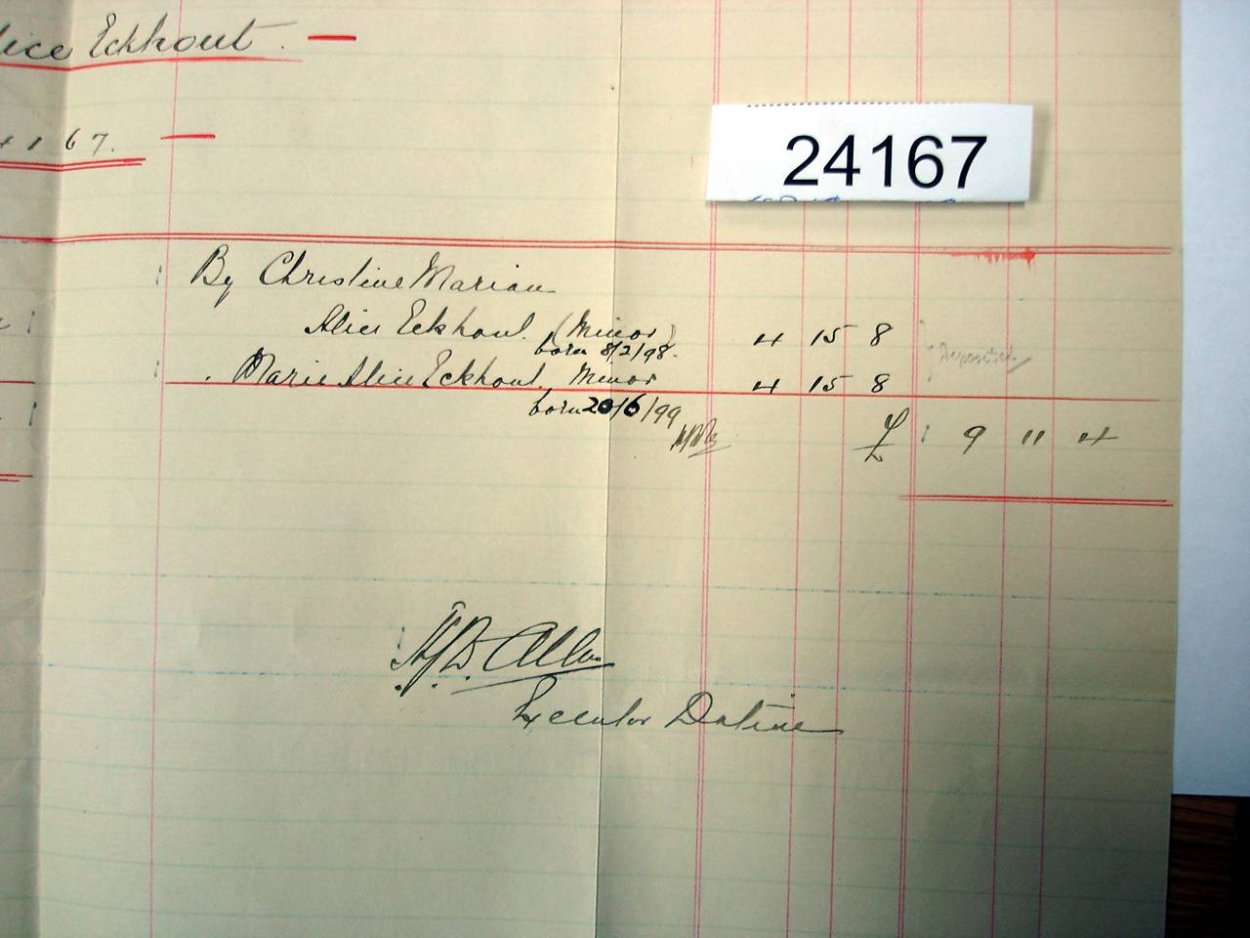 lice Eckhout. —
4167. —
24167
By Christine Marian
Alice Eckhout. (Minor) 4 15 8
born 8/2/98.
. Marie Alice Eckhout, Minor 4 15 8
born 20/6/99
£ 9 11 4
Allen
Executor Dative